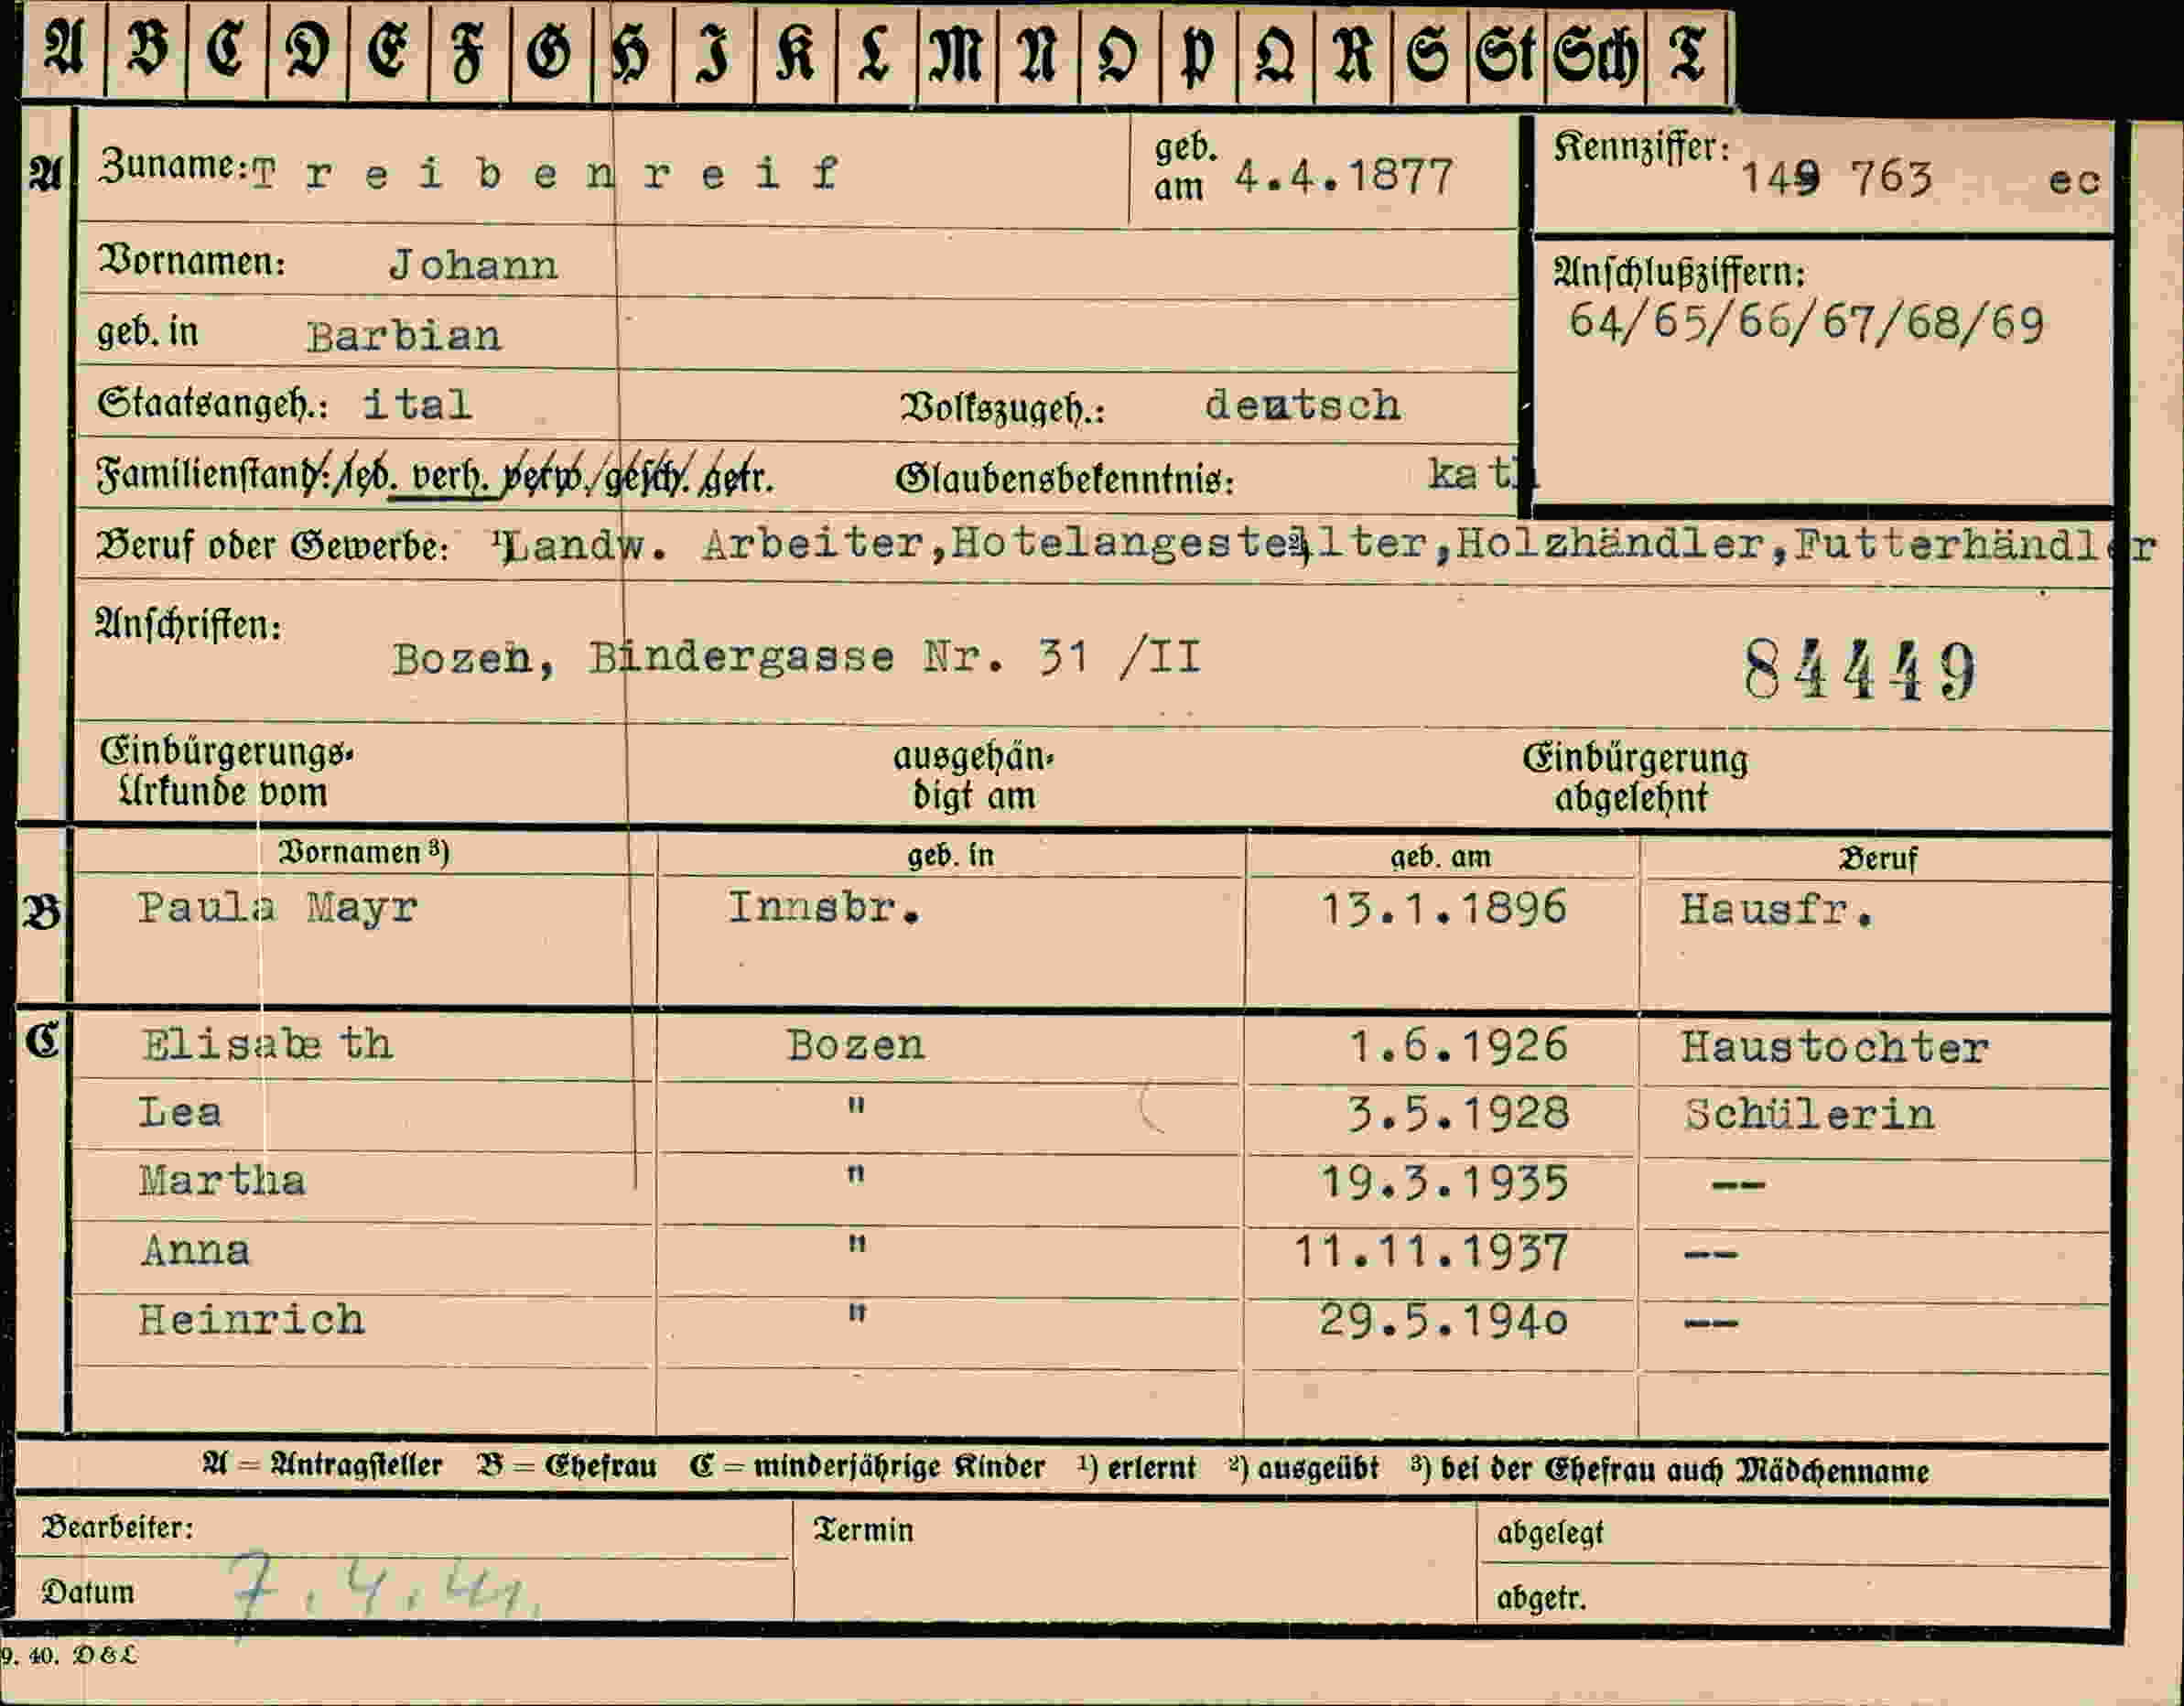 A B C D E F G H I K L M N O P Q R S St Sch T
A Zuname: Treibenreif geb. am 4.4.1877 Kennziffer: 149 763 ec
Vornamen: Johann
Anschlußziffern:
64/65/66/67/68/69
geb. in Barbian
Staatsangeh.: ital Volkszugeh.: deutsch
Familienstand: led. verh. verw. gesch. getr. Glaubensbekenntnis: kath
Beruf oder Gewerbe: ¹) Landw. Arbeiter, Hotelangestellter, Holzhändler, Futterhändler
Anschriften:
Bozen, Bindergasse Nr. 31 /II 84449
Einbürgerungs- ausgehän- Einbürgerung
Urkunde vom digt am abgelehnt
Vornamen ³) geb. in geb. am Beruf
B Paula Mayr Innsbr. 13.1.1896 Hausfr.
C Elisabeth Bozen 1.6.1926 Haustochter
Lea " 3.5.1928 Schülerin
Martha " 19.3.1935 --
Anna " 11.11.1937 --
Heinrich " 29.5.1940 --
A = Antragsteller B = Ehefrau C = minderjährige Kinder ¹) erlernt ²) ausgeübt ³) bei der Ehefrau auch Mädchenname
Bearbeiter: Termin abgelegt
Datum 7.4.41. abgetr.
9. 40. D & L